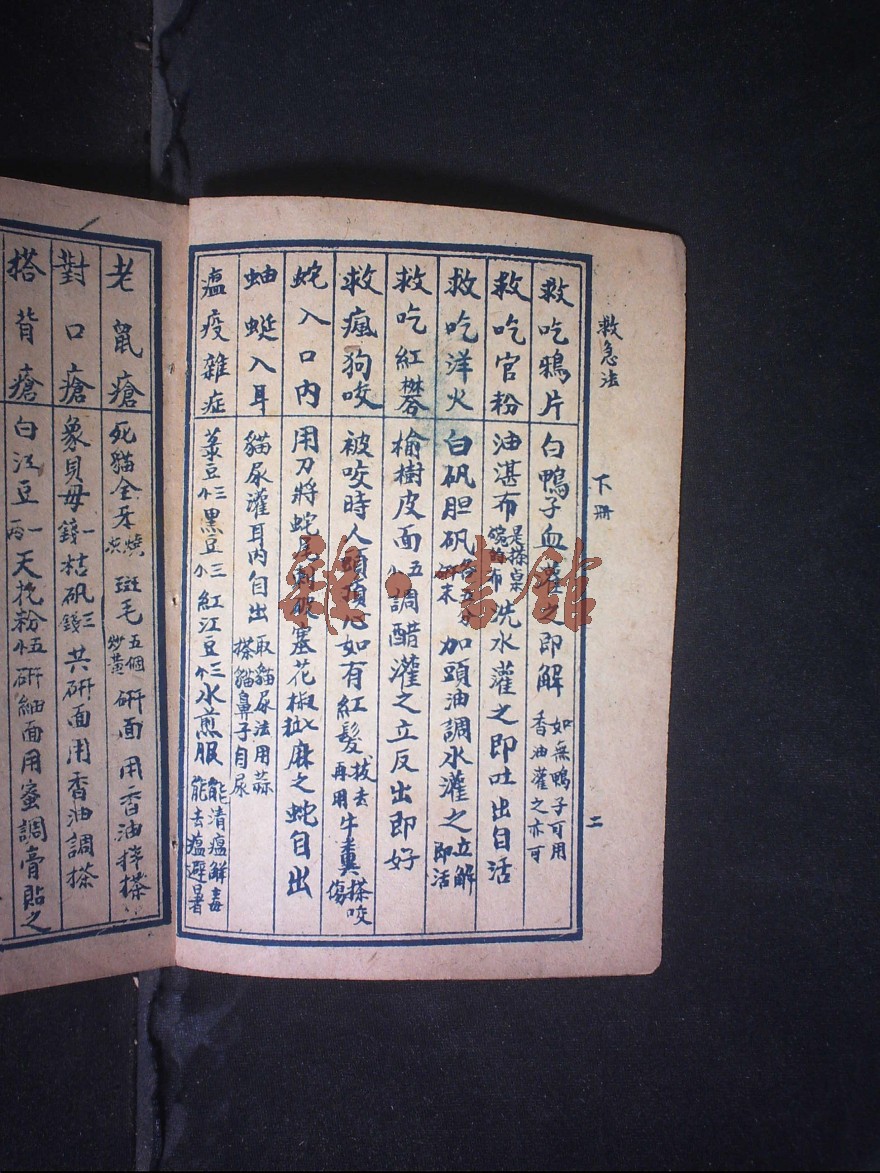 救急法
下册
二
救吃鴉片 白鴨子血灌之即解 如無鴨子可用香油灌之亦可
救吃官粉 油湛布 是搽桌碗的布 洗水灌之即吐出自活
救吃洋火 白矾胆矾 末 加頭油調水灌之 立解即活
救吃紅礬 榆樹皮面 五 調醋灌之立反出即好
救瘋狗咬 被咬時人頭頂心如有紅髮 拔去再用 牛糞 搽咬傷
蛇入口内 用刀將蛇尾刺破塞花椒 麻之蛇自出
蚰蜒入耳 貓尿灌耳内自出 取貓尿法用蒜搽貓鼻子自尿
瘟疫雜症 菉豆 三 黑豆 三 紅江豆 三 水煎服 能清瘟解毒能去瘟避暑
老鼠瘡 死貓全牙 燒灰 斑毛 五個炒黄 研面用香油拌搽
對口瘡 象貝母 一錢 枯矾 三錢 共研面用香油調搽
搭背瘡 白江豆 一兩 天花粉 五 研細面用蜜調膏貼之
雜·書館